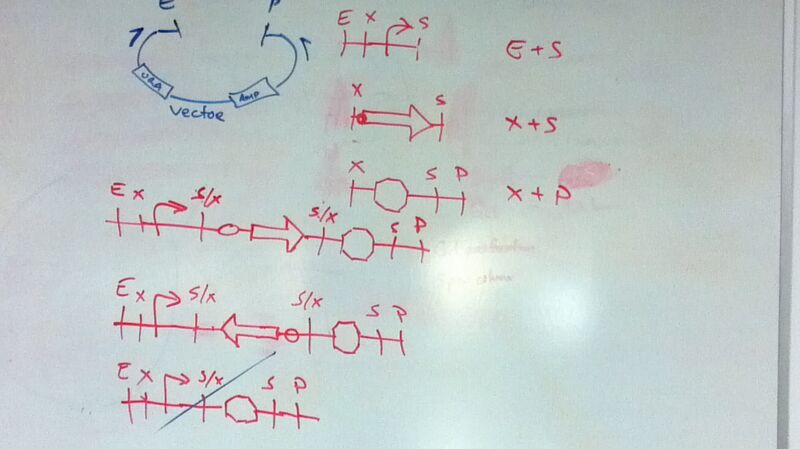 E P
URA AMP
vector
E X S
E + S
X S
X + S
X S P
X + P
E X S/X S/X S P
E X S/X S/X S P
E X S/X S P